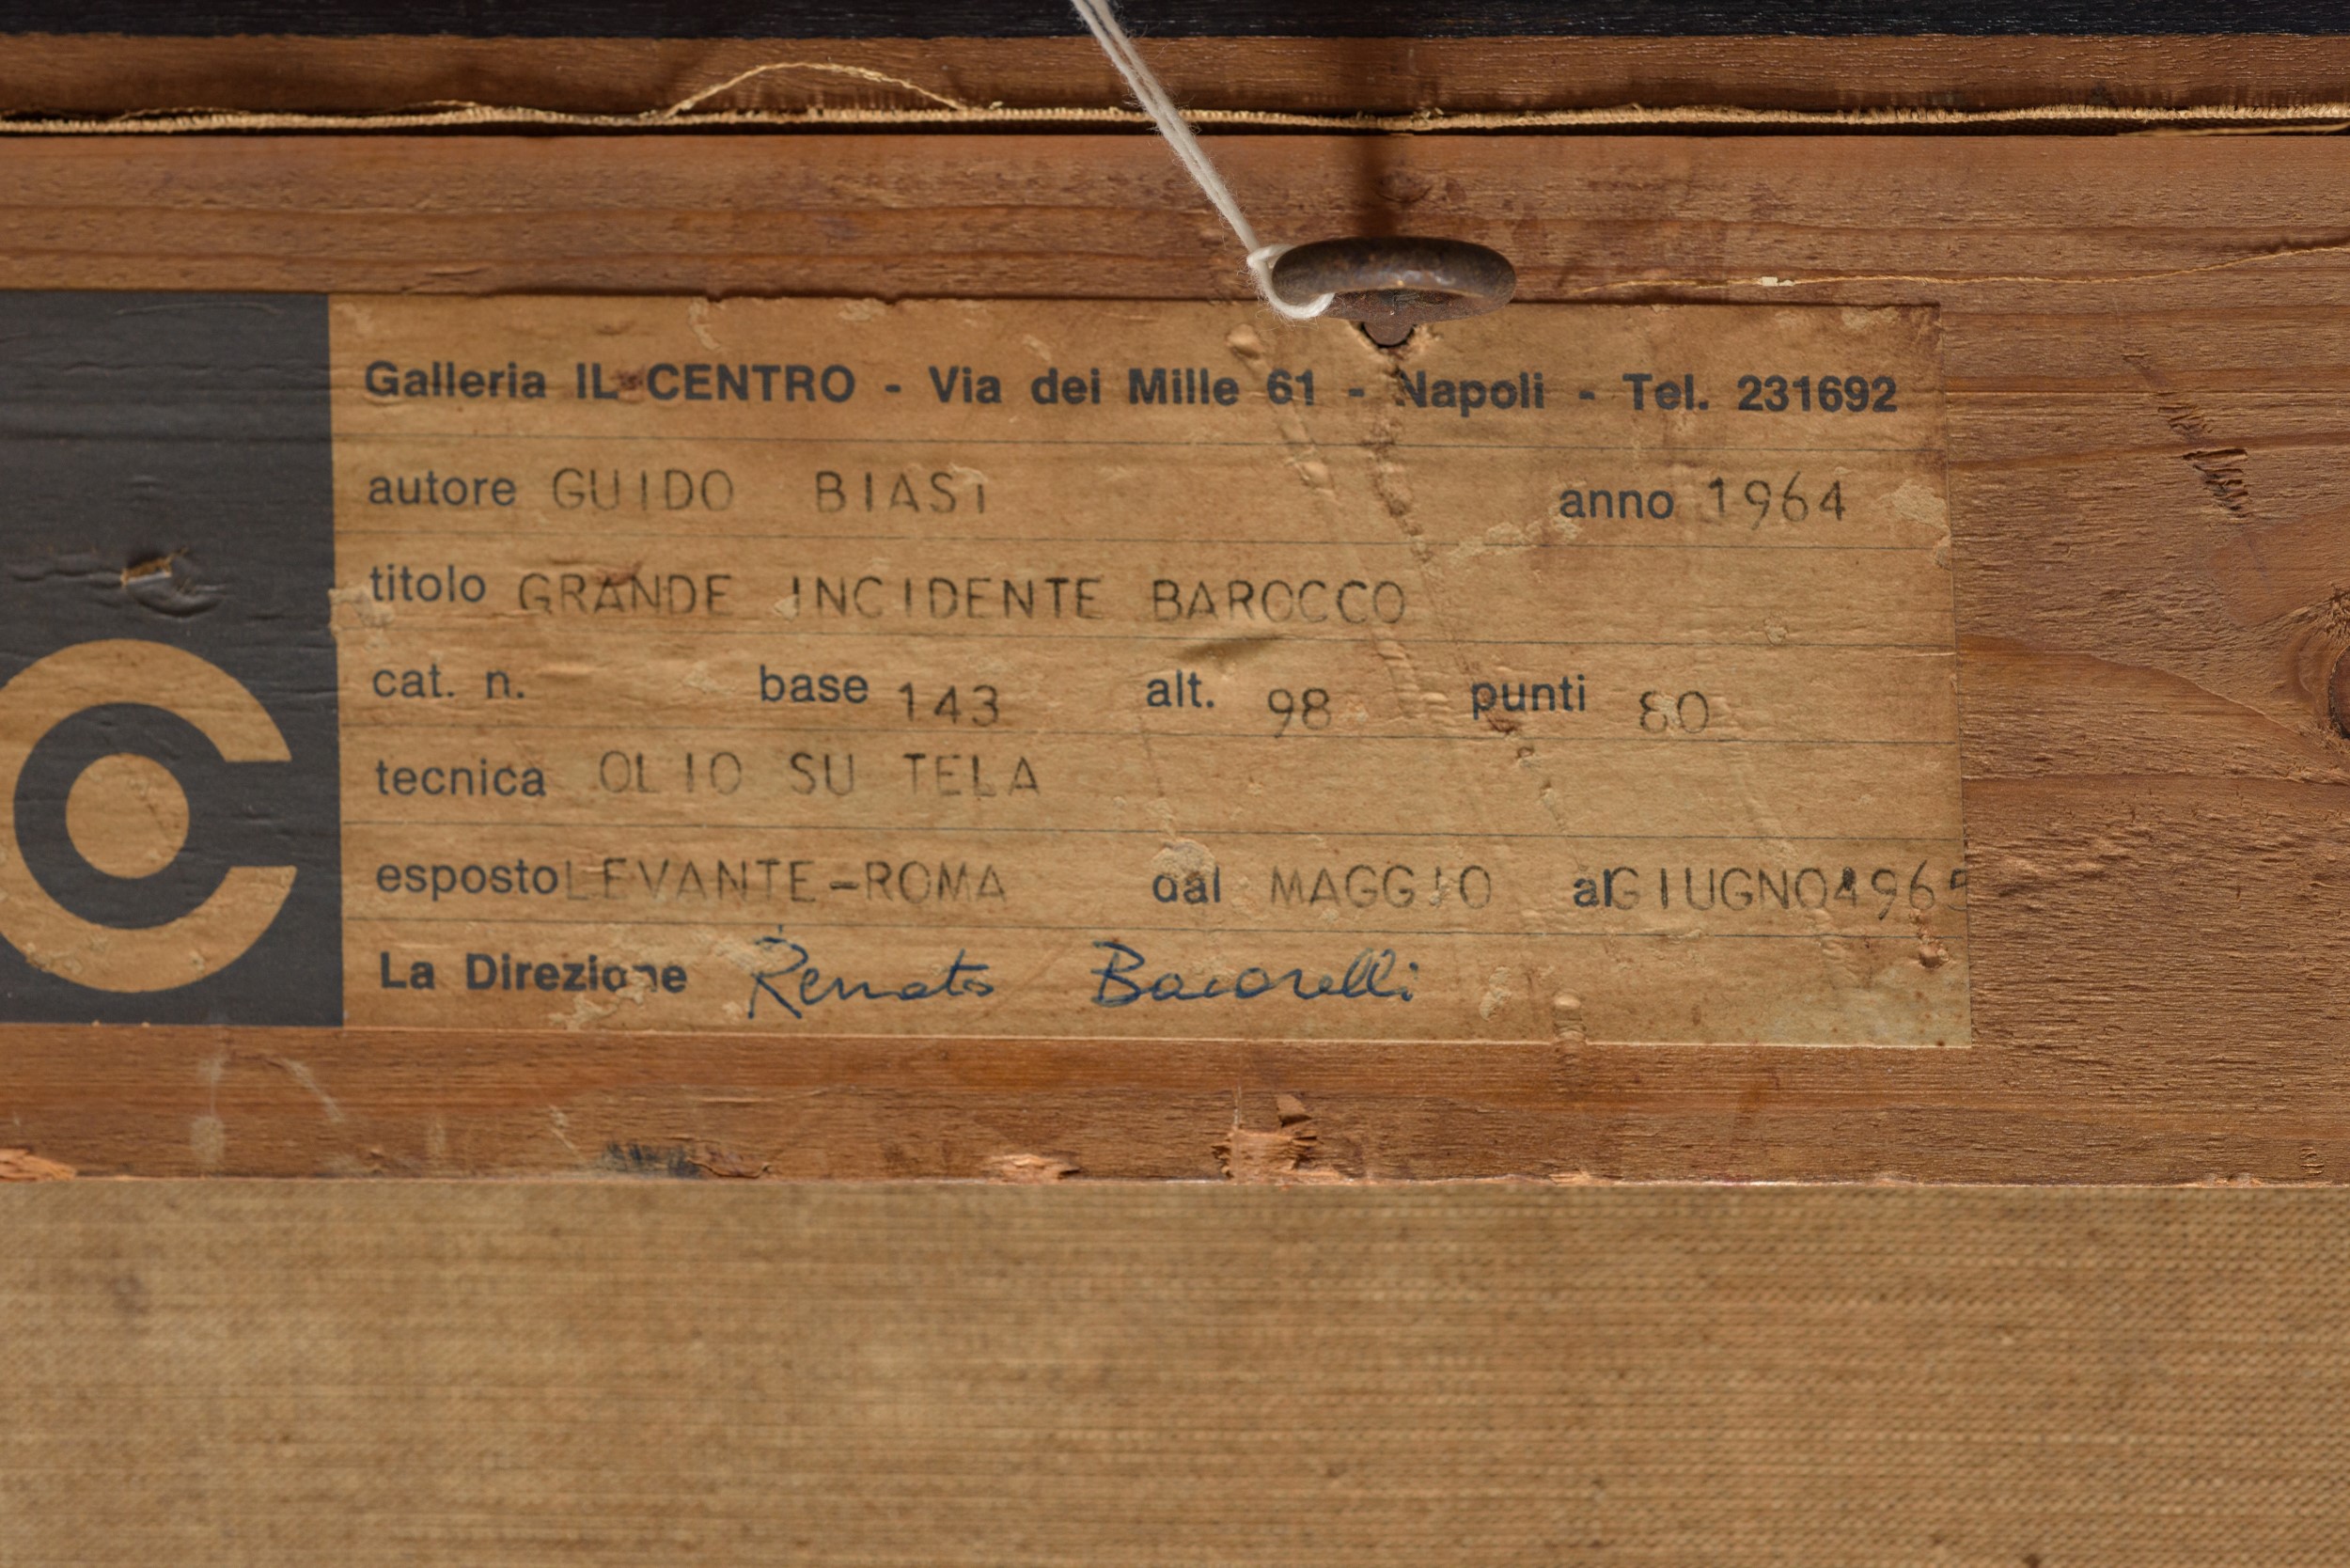 Galleria IL CENTRO - Via dei Mille 61 - Napoli - Tel. 231692
autore GUIDO BIASI anno 1964
titolo GRANDE INCIDENTE BAROCCO
cat. n. base 143 alt. 98 punti 80
tecnica OLIO SU TELA
esposto LEVANTE-ROMA dal MAGGIO al GIUGNO 1965
La Direzione Renato Bacarelli